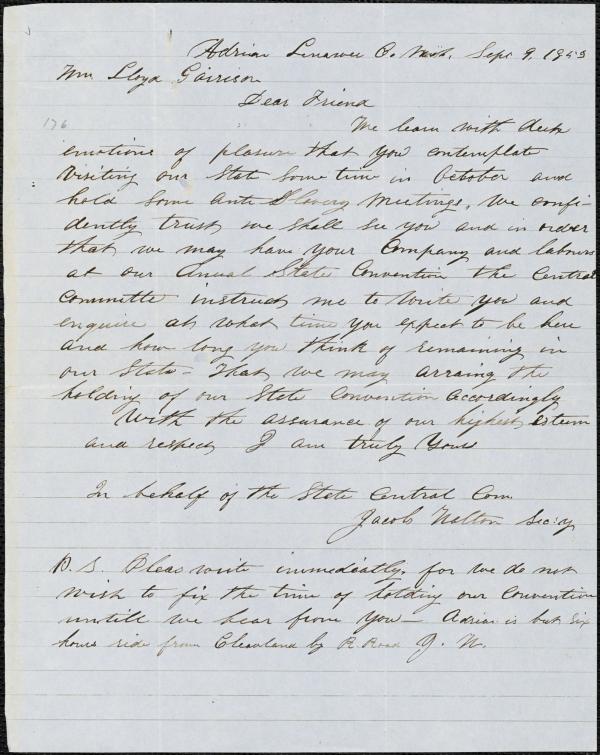 Adrian Lenawee Co. Mich. Sept 9, 1853
Wm Lloyd Garrison
Dear Friend
176
We learn with deep
emotions of plasure that you contemplate
visiting our State some time in October and
hold some Anti Slavery Meetings, We confi-
dently trust we shall see you and in order
that we may have your Company and labours
at our Anual State Convention the Central
Committe instruct me to write you and
enquire at what time you expect to be here
and how long you think of remaining in
our State - That we may arraing the
holding of our State Convention accordingly
With the assurance of our highest esteem
and respect I am truly Yours
In behalf of the State Central Com
Jacob Walton Sec:y
P. S. Pleas write immediatly, for we do not
wish to fix the time of holding our Convention
untill we hear from you - Adrian is but Six
hours ride from Cleavland by R. Road J. W.